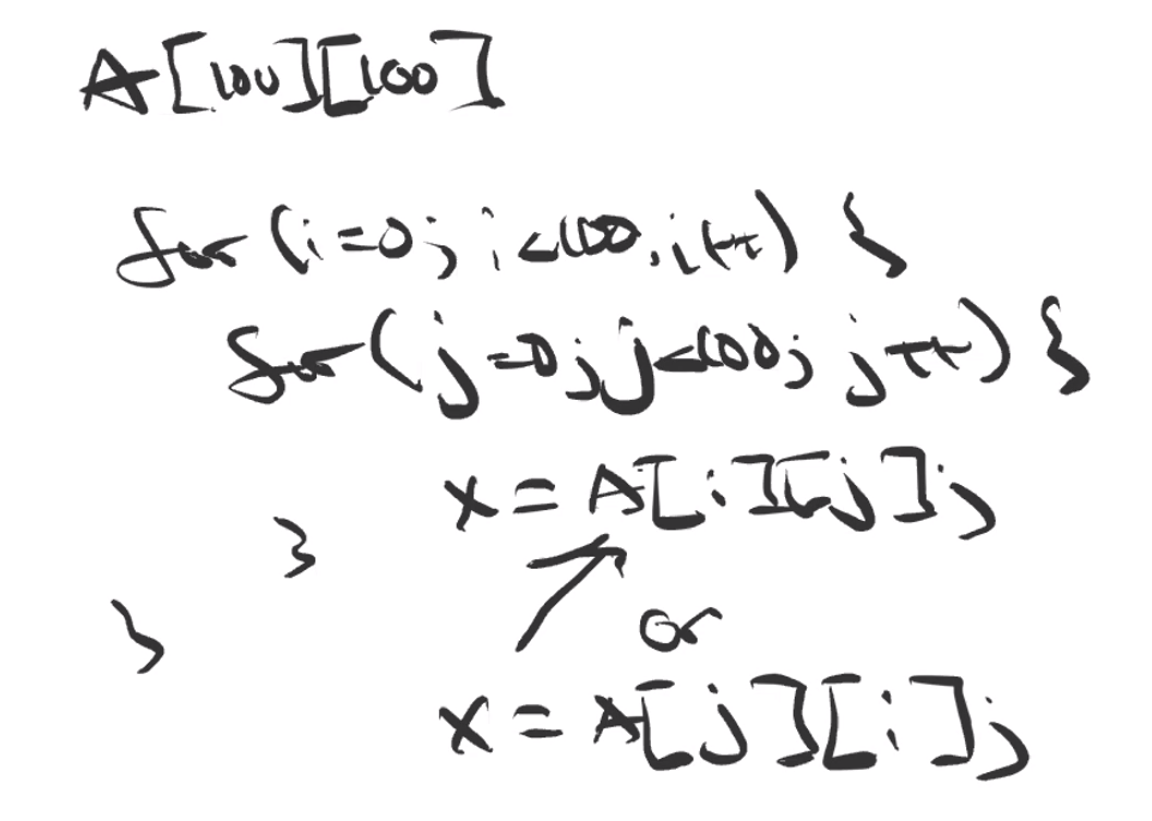 A[100][100]
for (i=0; i<100; i++) {
for (j=0; j<100; j++) {
x = A[i][j];
}
}
or
x = A[j][i];